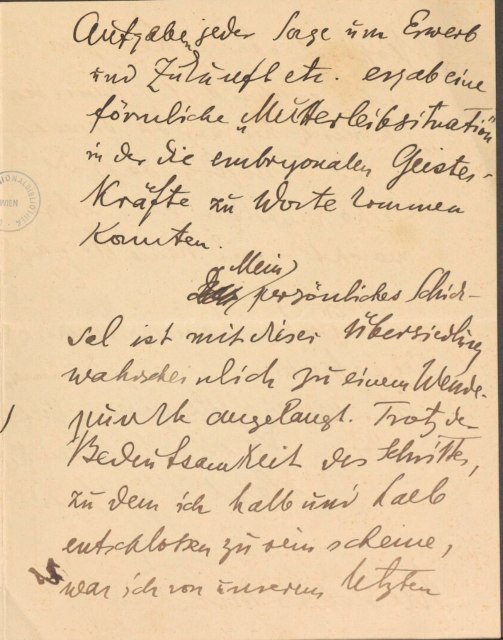 Aufgaben jeder Sorge um Erwerb
und Zukunft etc. ergab eine
förmliche „Mutterleibsituation"
in der die embryonalen Geistes-
kräfte zu Worte kommen
konnten.
Mein
persönliches Schick-
sal ist mit dieser Übersiedlung
wahrscheinlich zu einem Wende-
punkte angelangt. Trotz der
Bedeutsamkeit des Schrittes,
zu dem ich halb und halb
entschlossen zu sein scheine,
war ich von unserem letzten
WIEN